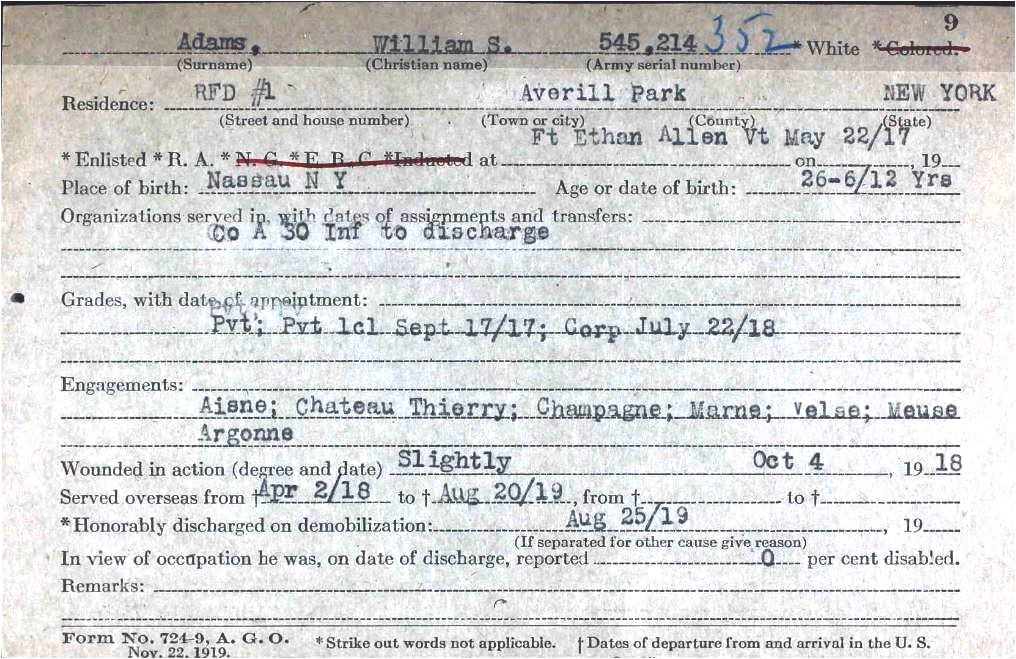 9
Adams, William S. 545,214 352 * White * Colored.
(Surname) (Christian name) (Army serial number)
Residence: RFD #1 Averill Park NEW YORK
(Street and house number) (Town or city) (County) (State)
Ft Ethan Allen Vt May 22/17
* Enlisted * R. A. * N. G. * E. R. C. * Inducted at on , 19
Place of birth: Nassau N Y Age or date of birth: 26-6/12 Yrs
Organizations served in, with dates of assignments and transfers:
Co A 30 Inf to discharge
Grades, with date of appointment:
Pvt; Pvt 1cl Sept 17/17; Corp July 22/18
Engagements:
Aisne; Chateau Thierry; Champagne; Marne; Velse; Meuse
Argonne
Wounded in action (degree and date) Slightly Oct 4 , 19 18
Served overseas from † Apr 2/18 to † Aug 20/19 , from † to †
* Honorably discharged on demobilization: Aug 25/19 , 19
(If separated for other cause give reason)
In view of occupation he was, on date of discharge, reported 0 per cent disabled.
Remarks:
Form No. 724-9, A. G. O. * Strike out words not applicable. † Dates of departure from and arrival in the U. S.
Nov. 22, 1919.